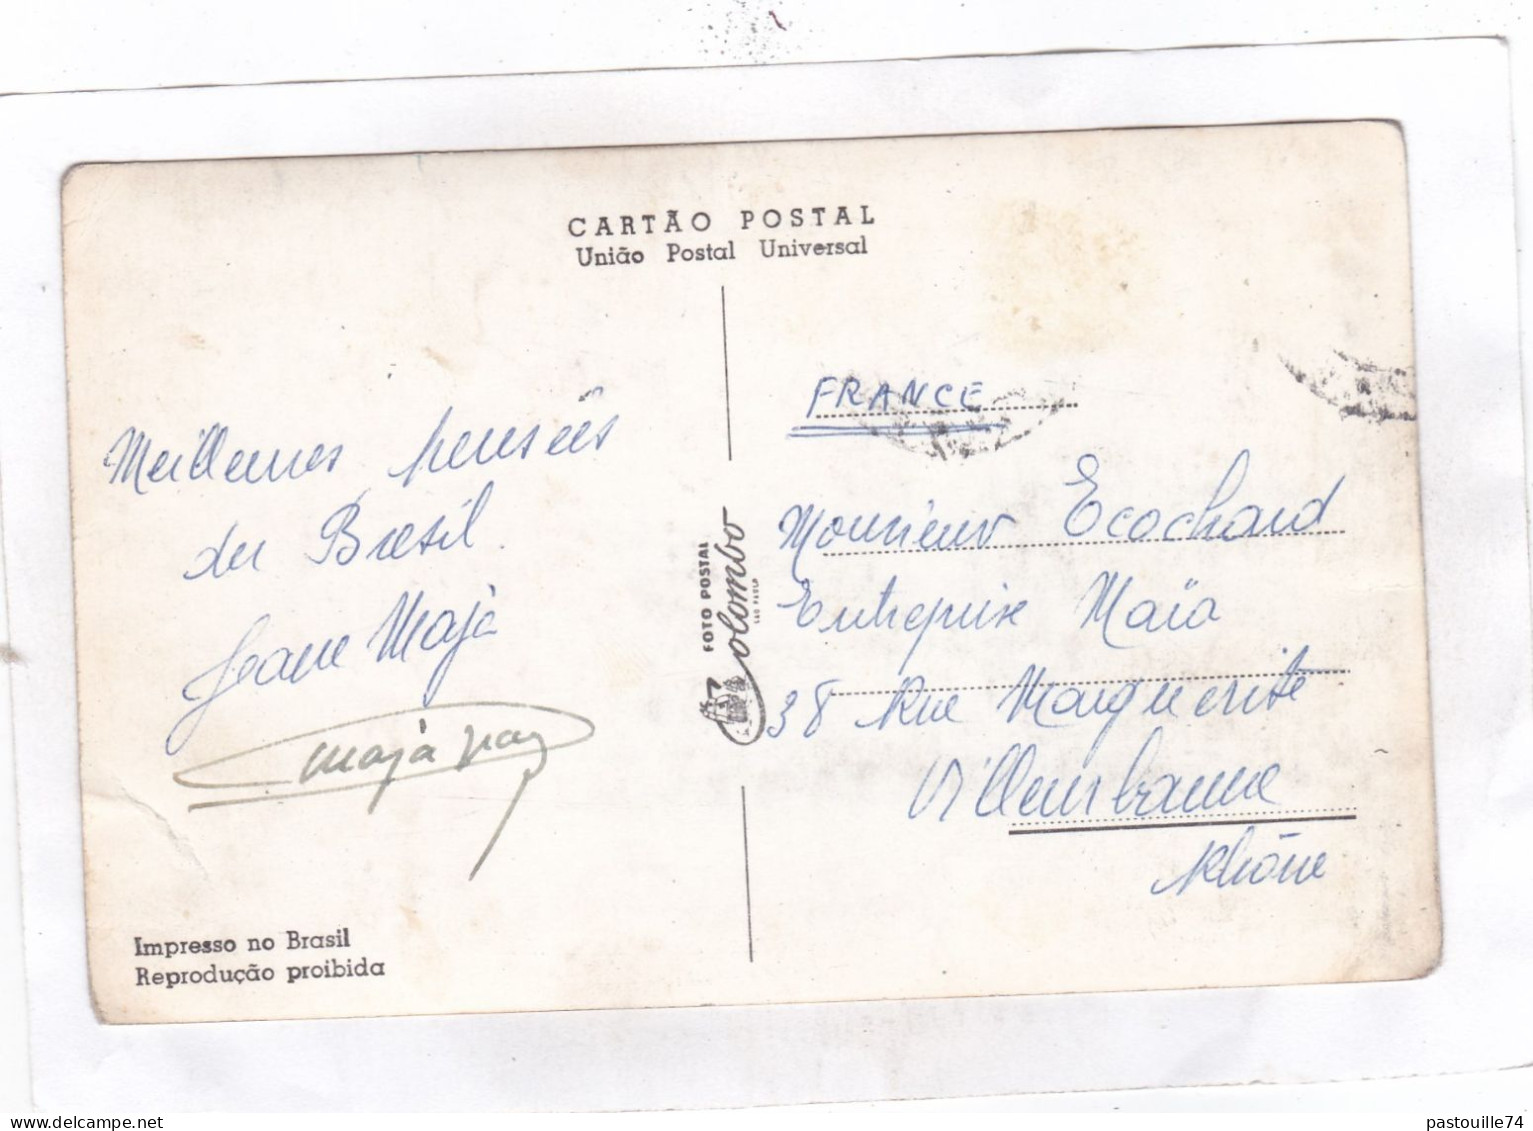 CARTÃO POSTAL
União Postal Universal
Meilleures pensées
du Brésil.
Jeane Majà
Majà
Impresso no Brasil
Reprodução proibida
FOTO POSTAL
Colombo
SÃO PAULO
FRANCE
Monsieur Ecochard
Entreprise Maïa
38 Rue Marguerite
Villeurbanne
Rhône
pastouille74